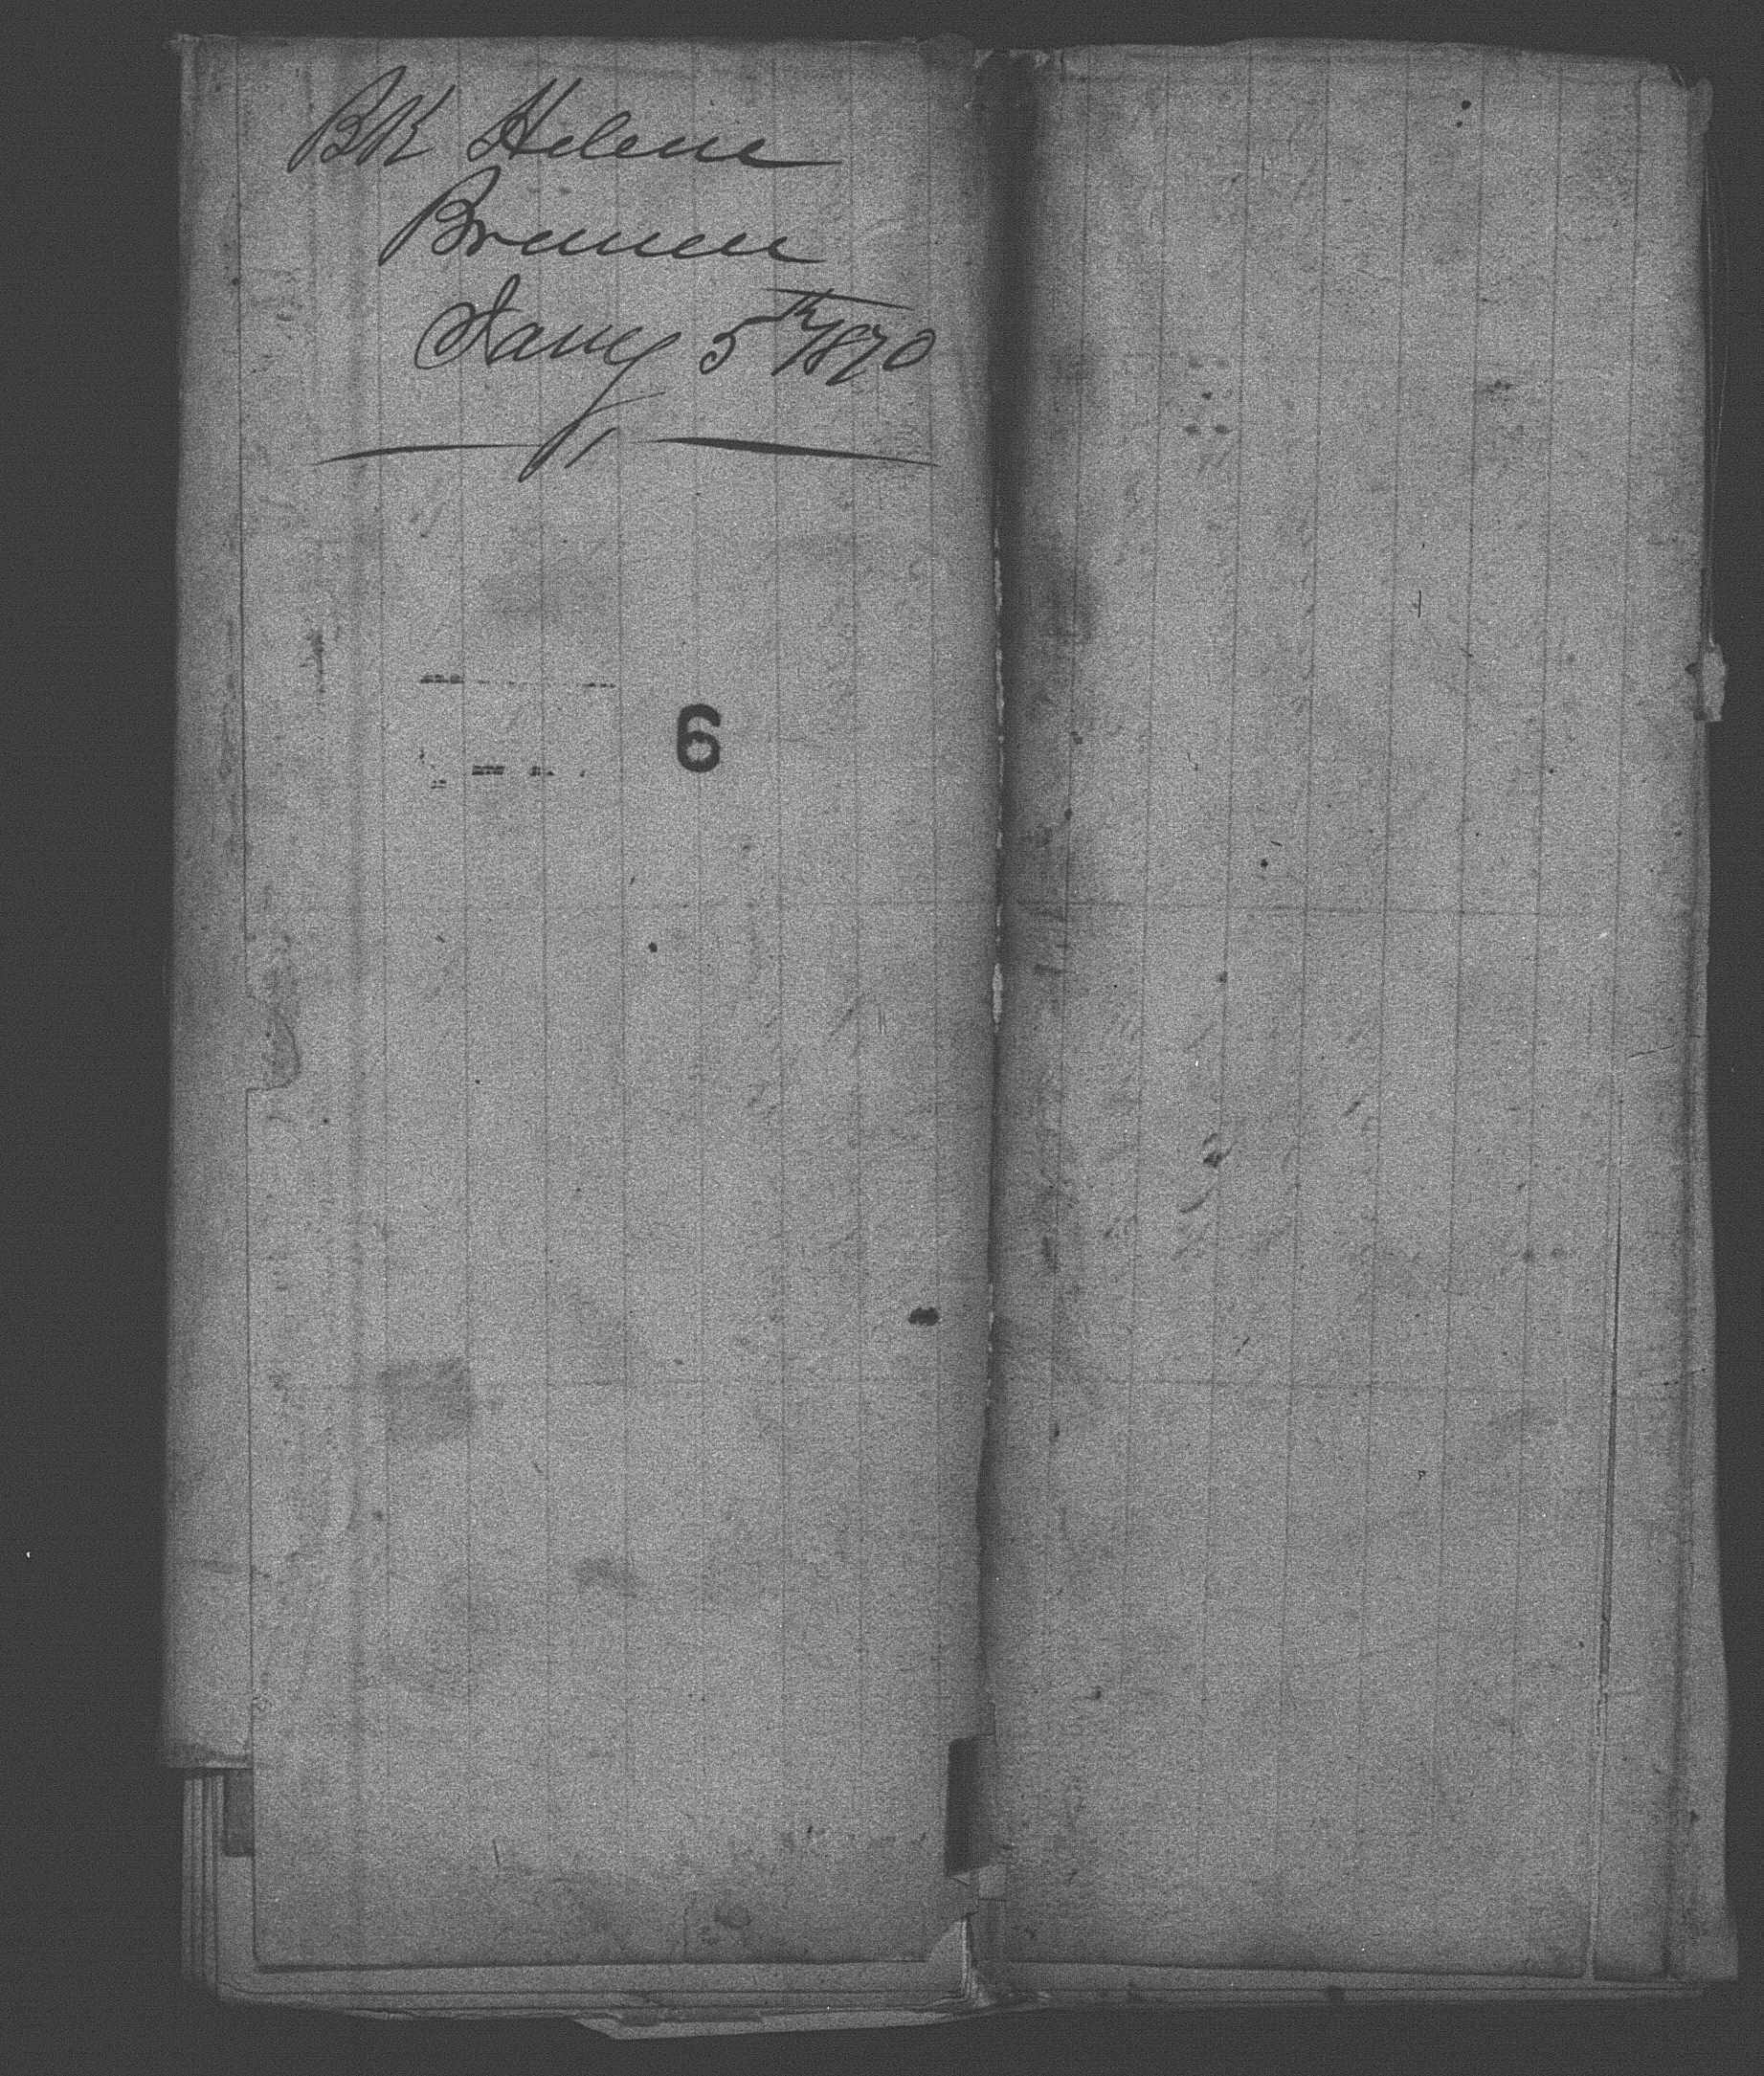 BK Helene
Bremen
Jany 5th 1870
6